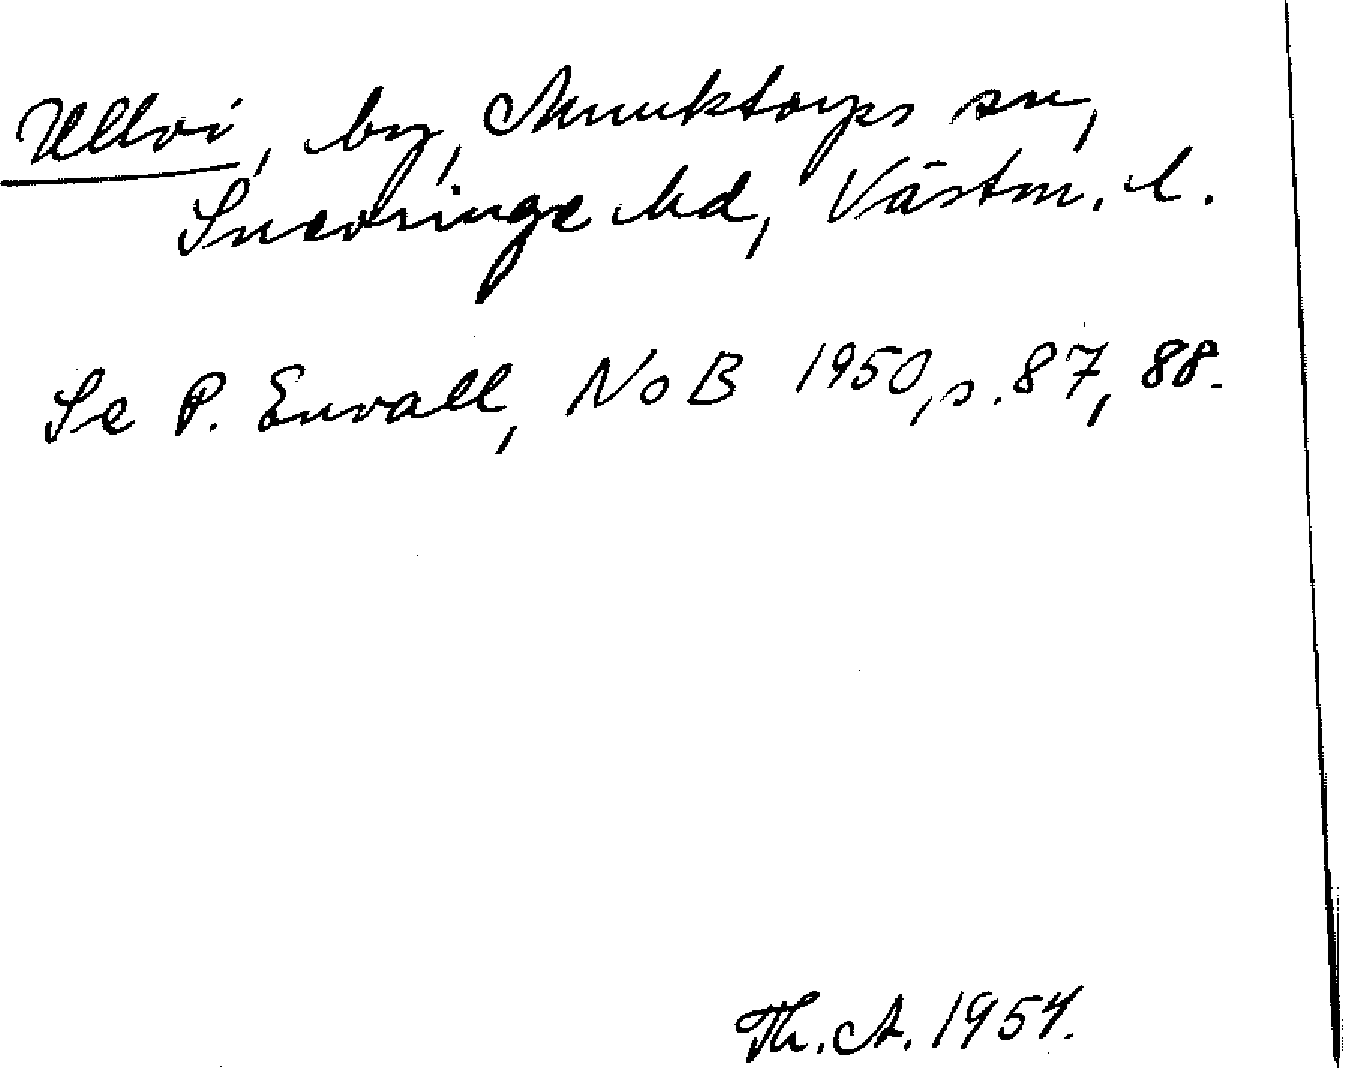 Ullvi, by, Munktorps sn,
Snevringe hd, Västm. l.
Se P. Envall, NoB 1950, s. 87, 88.
Th. A. 1954.